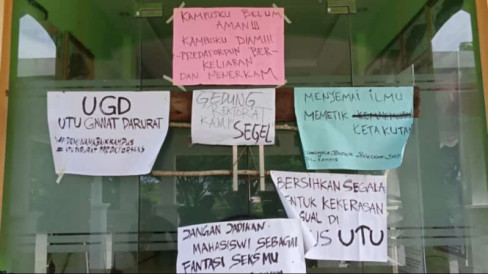 KAMPUSKU BELUM
AMAN!!!
KAMPUSKU DIAM!!!
PREDATORPUN BER-
KELIARAN
DAN MENERKAM
UGD
UTU GAWAT DARURAT
GEDUNG
REKTORAT
KAMI
SEGEL
MENYEMAI ILMU
MEMETIK
KETAKUTAN
BERSIHKAN SEGALA
BENTUK KEKERASAN
SUAL DI
US UTU
JANGAN JADIKAN
MAHASISWI SEBAGAI
FANTASI SEKSMU